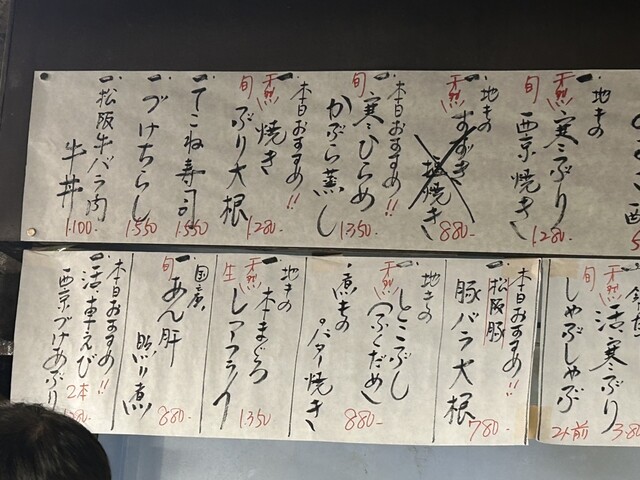 地もの
天然 寒ぶり
旬 西京焼き
1280-
地もの
天然 すずき
塩焼き
880-
本日おすすめ!!
旬 寒ひらめ
かぶら蒸し
1350-
本日おすすめ!!
天然 焼き
旬 ぶり大根
1280-
てこね寿司
1550
づけちらし
1550
松阪牛バラ肉
牛丼
1100-
天然 活寒ぶり
旬 しゃぶしゃぶ
2人前
本日おすすめ!!
松阪豚
豚バラ大根
780-
地もの
天然 とこぶし
ふくだめ
煮もの
バター焼き
880-
地もの
天然 本まぐろ
生 レアフライ
1350
国産
旬 あん肝
照り煮
880-
本日おすすめ!!
活車えび
2本
西京づけあぶり